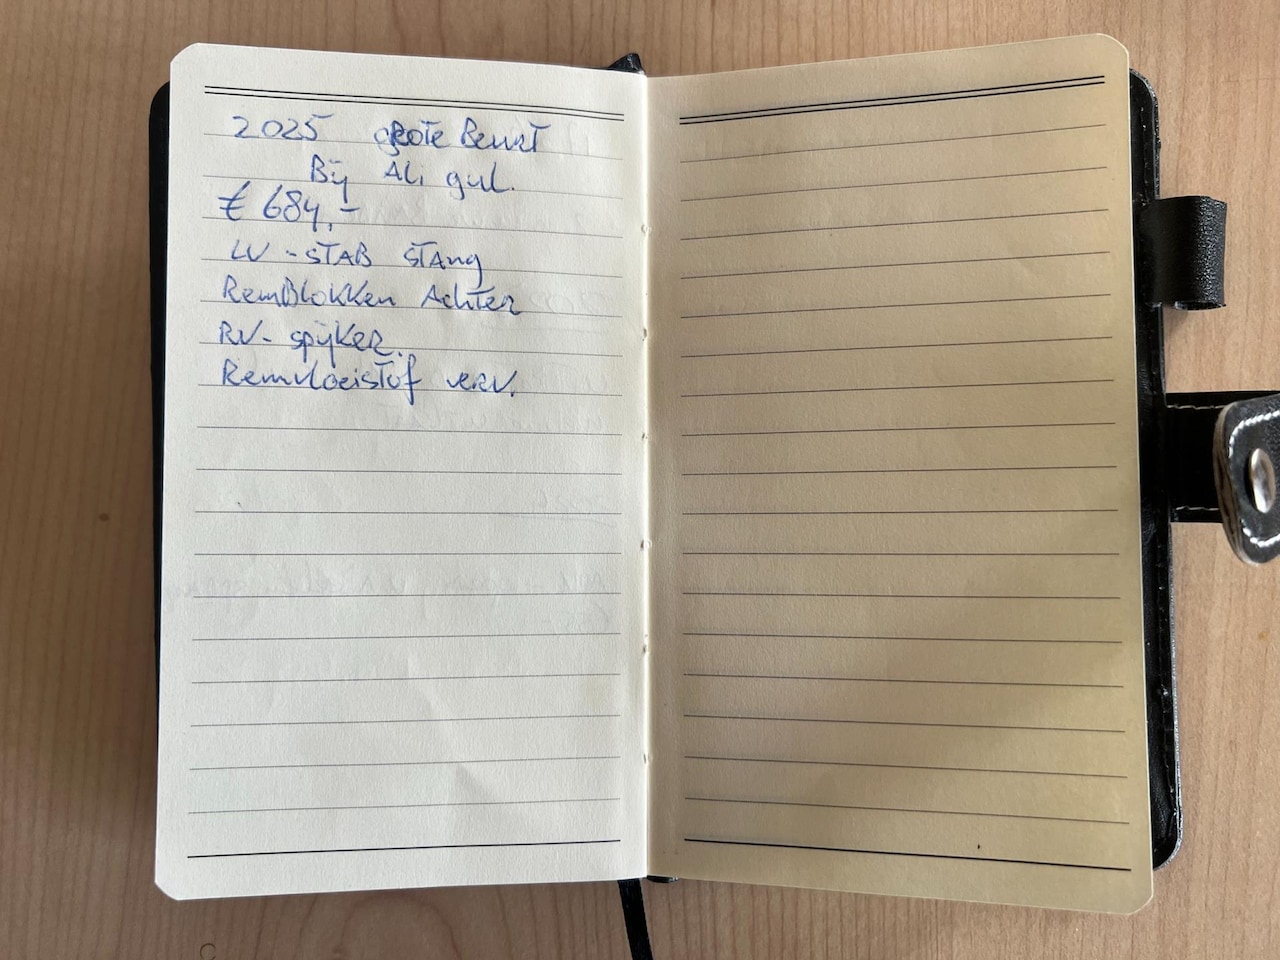 2025 grote Beurt
Bij Ali gul.
€ 684,-
LV - STAB STAng
RemBlokken Achter
RV - spijker.
Remvloeistof verv.